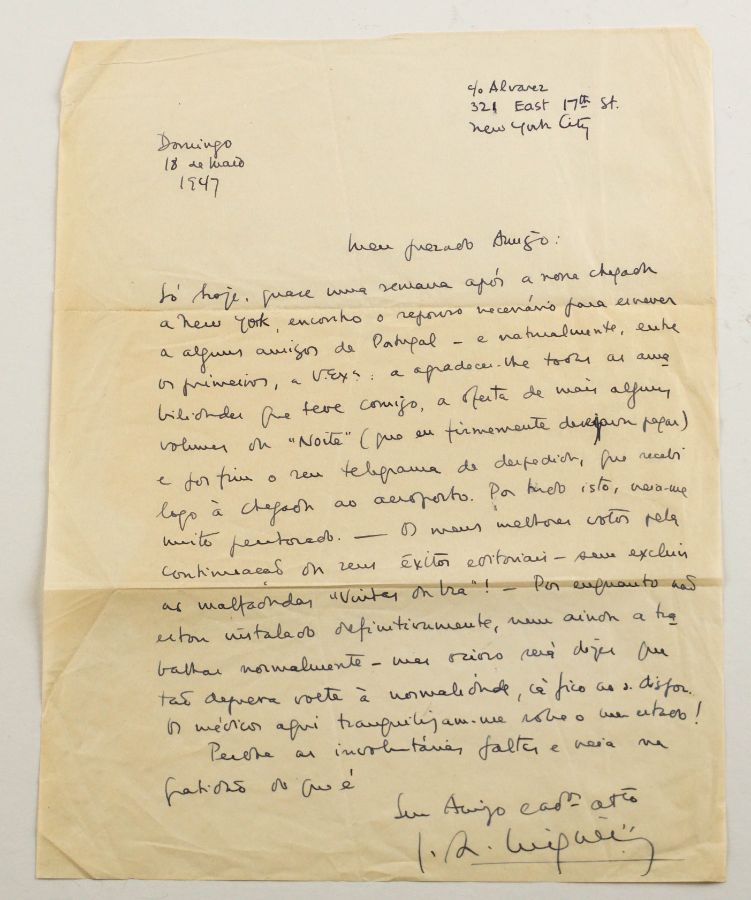 c/o Alvarez
321 East 17th St.
New York City
Domingo
18 de Maio
1947
Meu prezado Amigo:
Só hoje, quase uma semana após a nossa chegada
a New York, encontro o repouso necessário para escrever
a alguns amigos de Portugal – e naturalmente, entre
os primeiros, a V.Exª: a agradecer-lhe todas as ama
bilidades que teve comigo, a oferta de mais alguns
volumes da "Noite" (que eu firmemente desejava pagar)
e por fim o seu telegrama de despedida, que recebi
logo à chegada ao aeroporto. Por tudo isto, creia-me
muito penhorado. — Os meus melhores votos pela
continuação dos seus êxitos editoriais – sem excluir
as malfadadas "Vinhas da Ira"! – Por enquanto não
estou instalado definitivamente, nem ainda a tra
balhar normalmente – mas ocioso será dizer que
tão depressa volte à normalidade, cá fico ao s. dispor.
Os médicos aqui tranquilizam-me sobre o meu estado!
Perdoe as involuntárias faltas e creia na
gratidão do que é
Seu Amigo e adºr attº
J. R. Miguéis